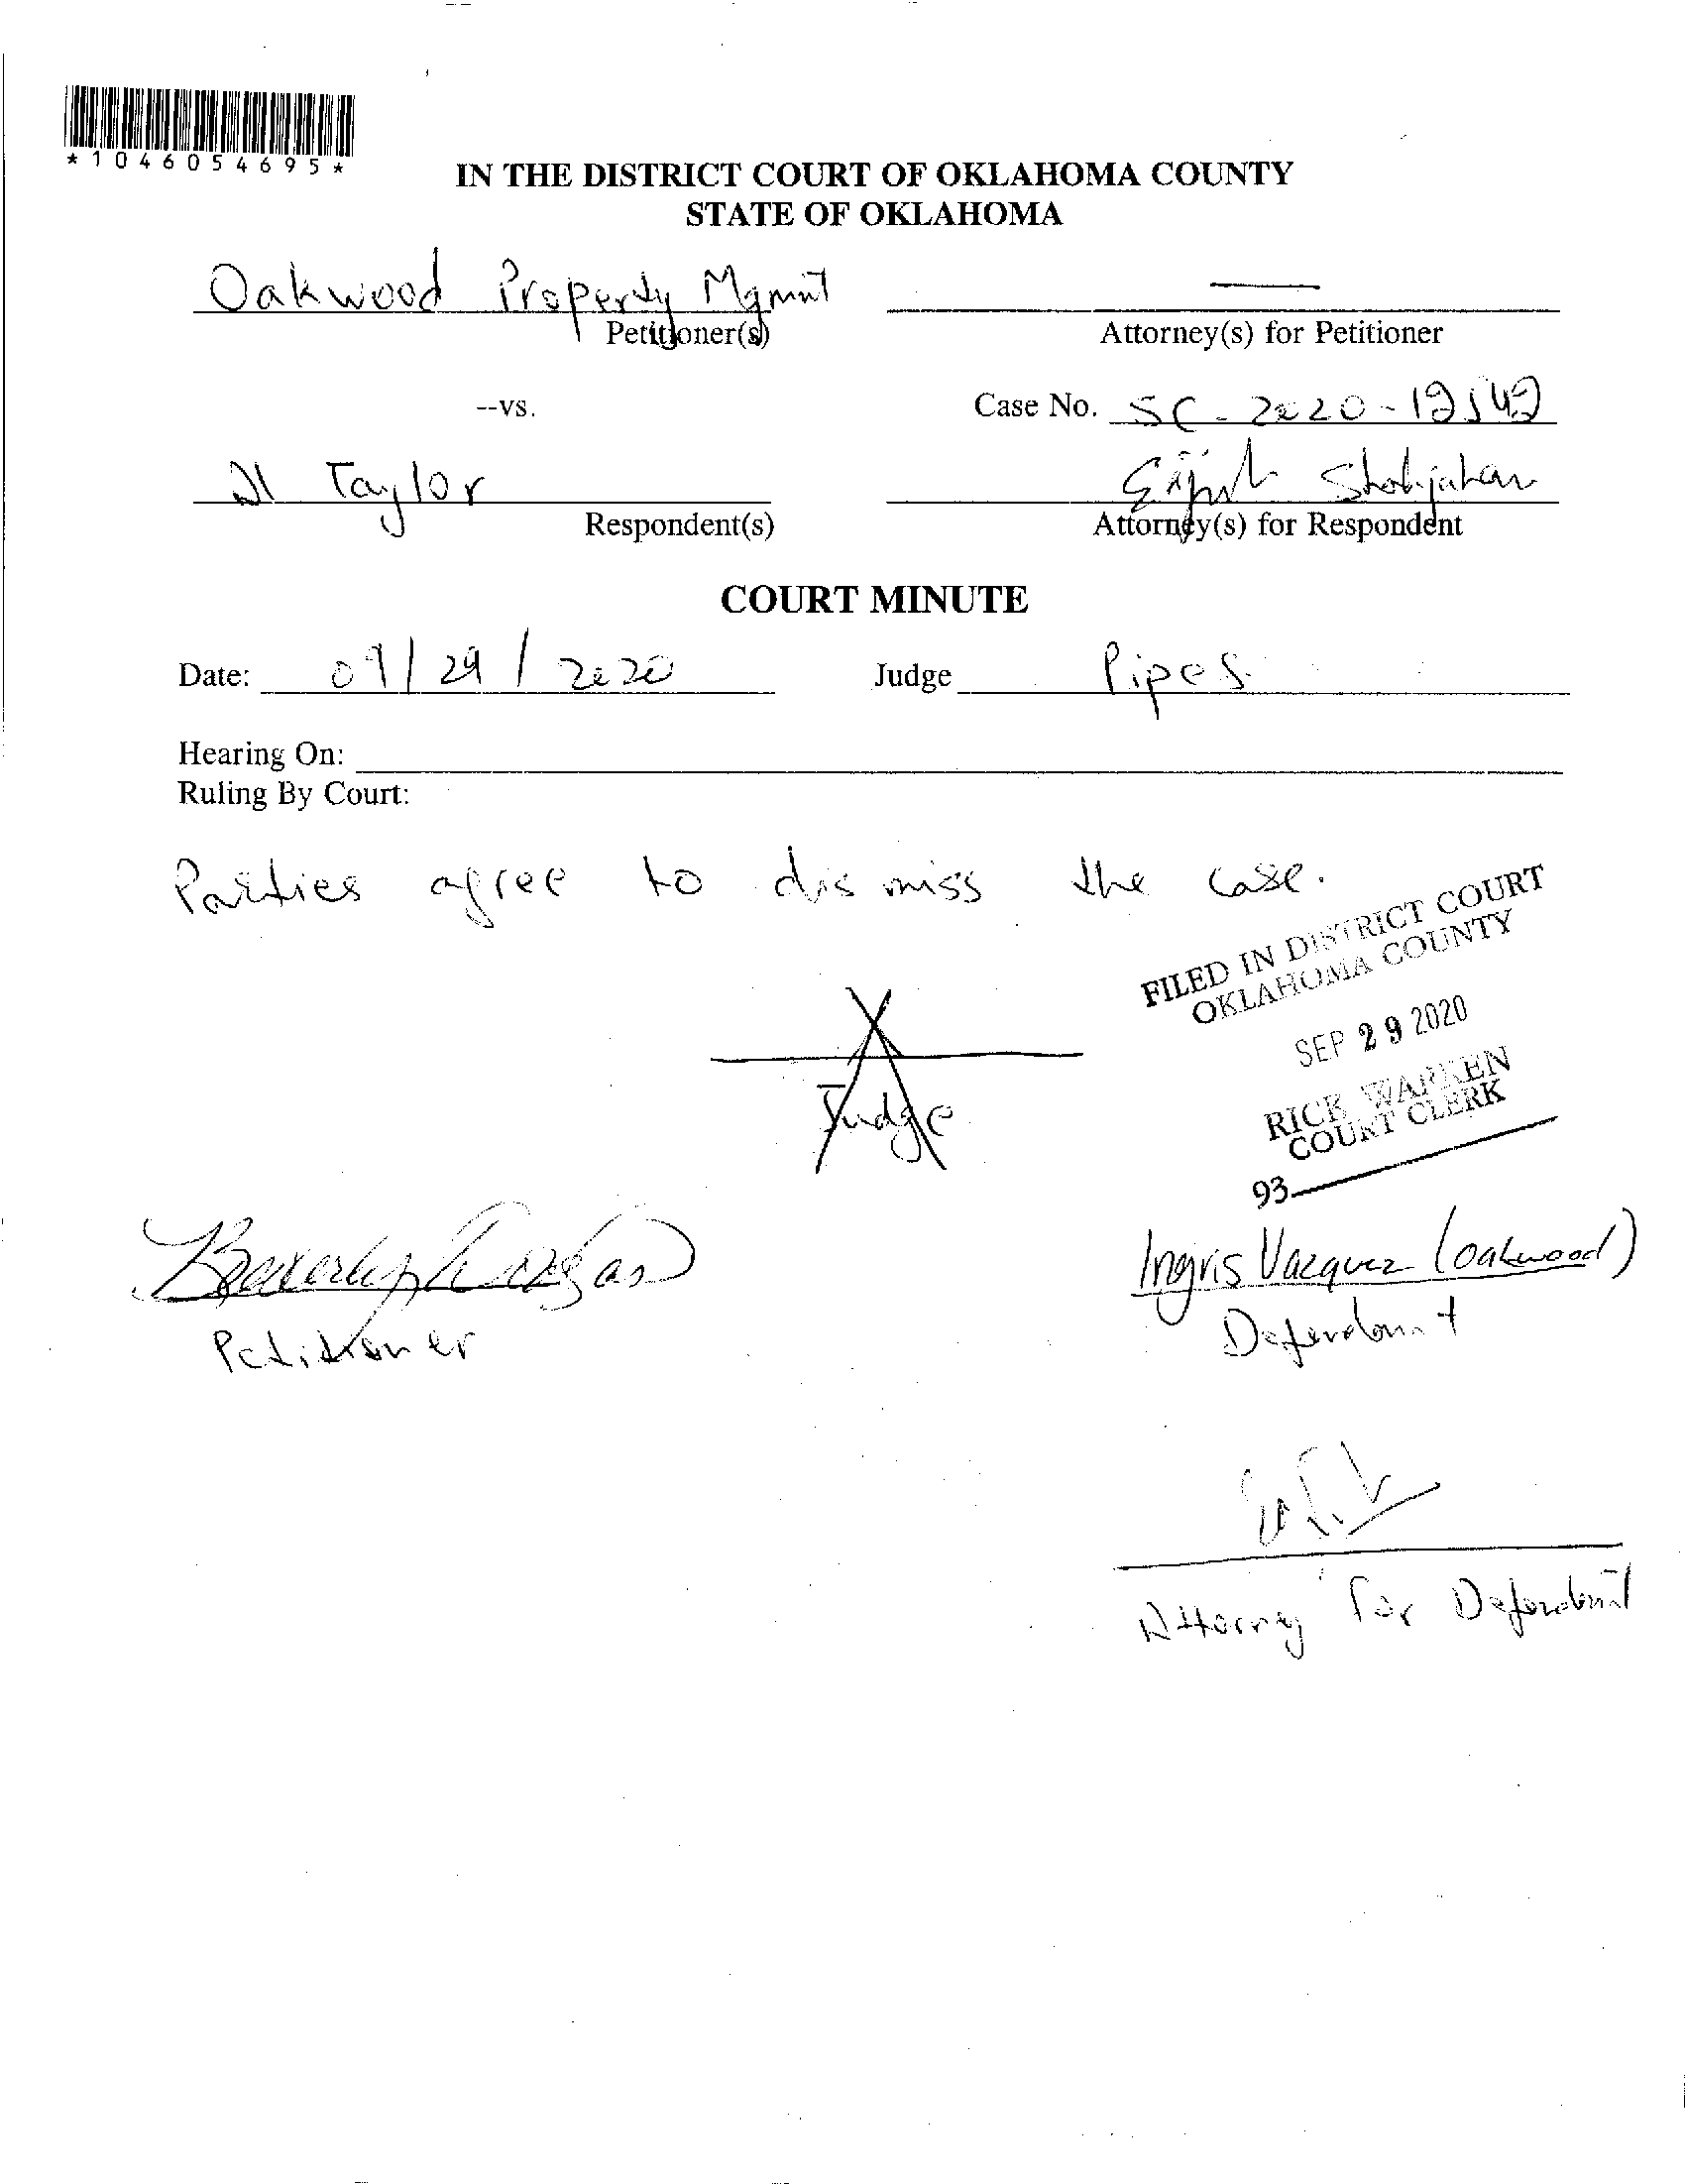 *1046054695*
IN THE DISTRICT COURT OF OKLAHOMA COUNTY
STATE OF OKLAHOMA
Oakwood Property Mgmnt
Petitioner(s)
Attorney(s) for Petitioner
--vs.
Case No. SC-2020-12542
Taylor
Respondent(s)
Shahjahan
Attorney(s) for Respondent
COURT MINUTE
Date: 09/29/2020 Judge Pipes
Hearing On:
Ruling By Court:
Parties agree to dismiss the case.
FILED IN DISTRICT COURT
OKLAHOMA COUNTY
SEP 29 2020
RICK WARREN
COURT CLERK
93
Judge
Beverly
Petitioner
Ingris Vazquez (Oakwood)
Defendant
Attorney for Defendant